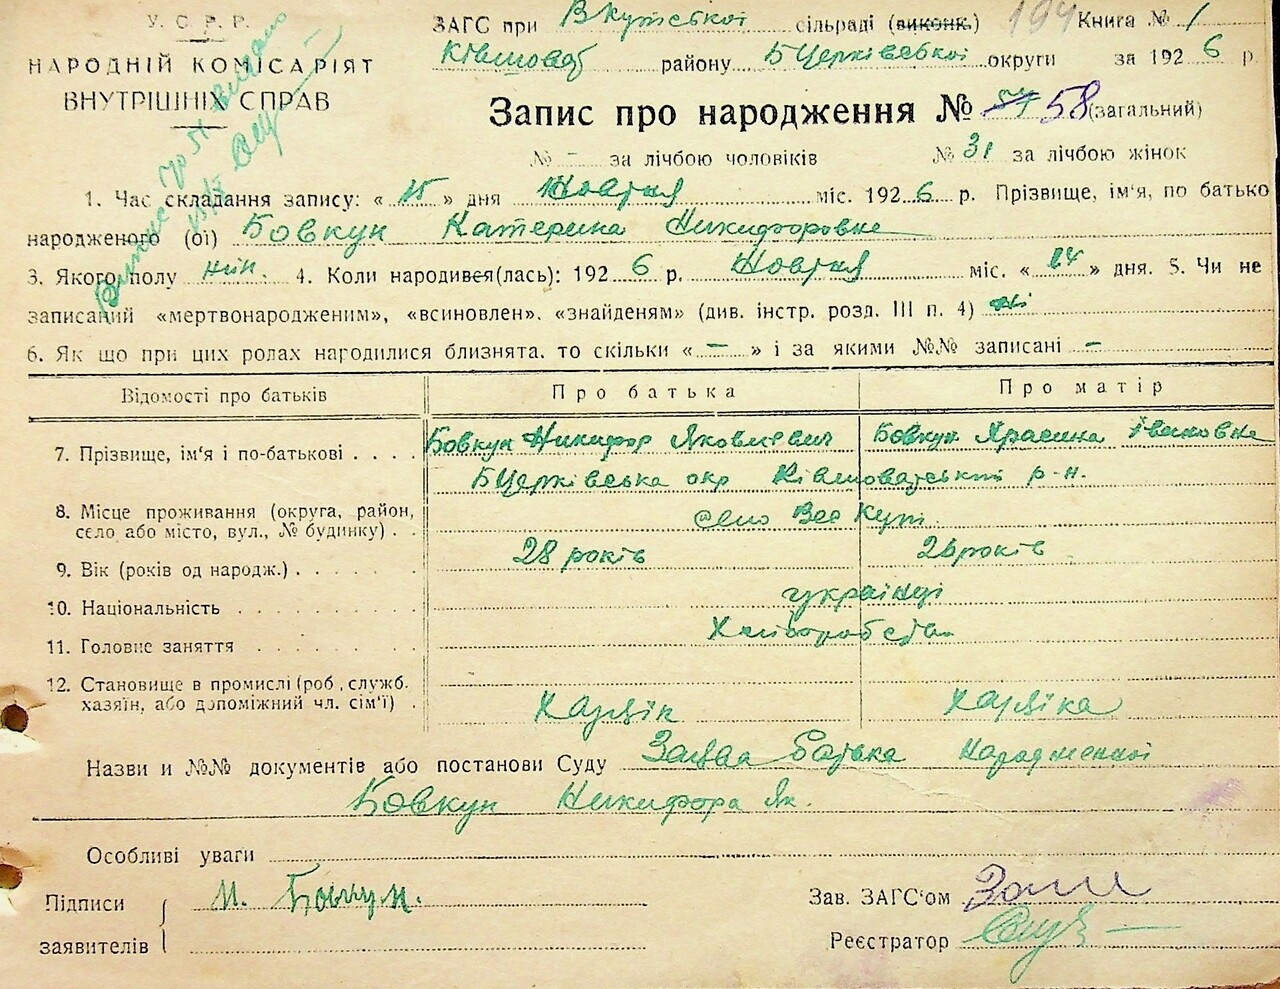 У. С. Р. Р.
НАРОДНІЙ КОМІСАРІЯТ
ВНУТРІШНІХ СПРАВ
ЗАГС при Вкутської сільраді (виконк.) 194 Книга № 1
району БЦерківської округи за 1926 р.
Запис про народження № 57 58 (загальний)
№ - за лічбою чоловіків № 31 за лічбою жінок
1. Час складання запису: « 15 » дня Ноября міс. 1926 р. Прізвище, ім'я, по батько
народженого (ої) Бовкун Катерина Никифоровна
3. Якого полу жін. 4. Коли народився(лась): 1926 р. Ноября міс. « 14 » дня. 5. Чи не
записаний «мертвонародженим», «всиновлен», «знайденям» (див. інстр. розд. III п. 4) ні
6. Як що при цих ролах народилися близнята, то скільки « – » і за якими №№ записані –
Відомості про батьків Про батька Про матір
7. Прізвище, ім'я і по-батькові . . . . Бовкун Никифор Яковлевич Бовкун Ярасина Івановна
БЦерківська окр Ківшоватський р-н.
8. Місце проживання (округа, район,
село або місто, вул., № будинку) . . село Вес Кути
9. Вік (років од народж.) . . . . . . 28 років 26 років
10. Національність . . . . . . . . . українці
11. Головне заняття . . . . . . . . Хліборобство
12. Становище в промислі (роб., служб.
хазяїн, або допоміжний чл. сім'ї) . Хазяїн Хазяїка
Назви и №№ документів або постанови Суду Заява батька народженної
Бовкун Никифора Як.
Особливі уваги
Підписи Н. Бовкун.
заявителів
Зав. ЗАГС'ом
Реєстратор